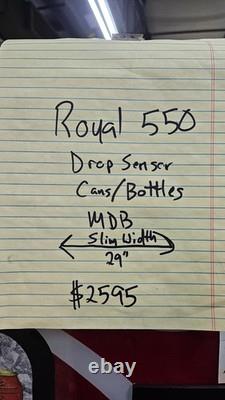 Royal 550
Drop Sensor
Cans/Bottles
MDB
Slim Width
29"
$2595
ebay